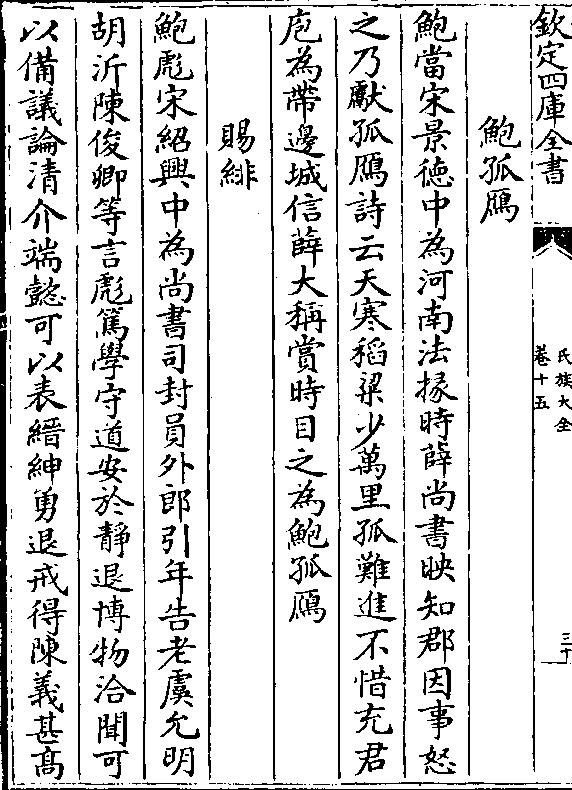 欽定四庫全書
氏族大全
卷十五
三十
鮑孤鴈
鮑當宋景徳中為河南法掾時薛尚書映知郡因事怒
之乃獻孤鴈詩云天寒稻粱少萬里孤難進不惜充君
庖為帶邊城信薛大稱賞時目之為鮑孤鴈
賜緋
鮑彪宋紹興中為尚書司封員外郎引年告老虞允明
胡沂陳俊卿等言彪篤學守道安於靜退博物洽聞可
以備議論清介端慤可以表縉紳勇退戒得陳義甚髙